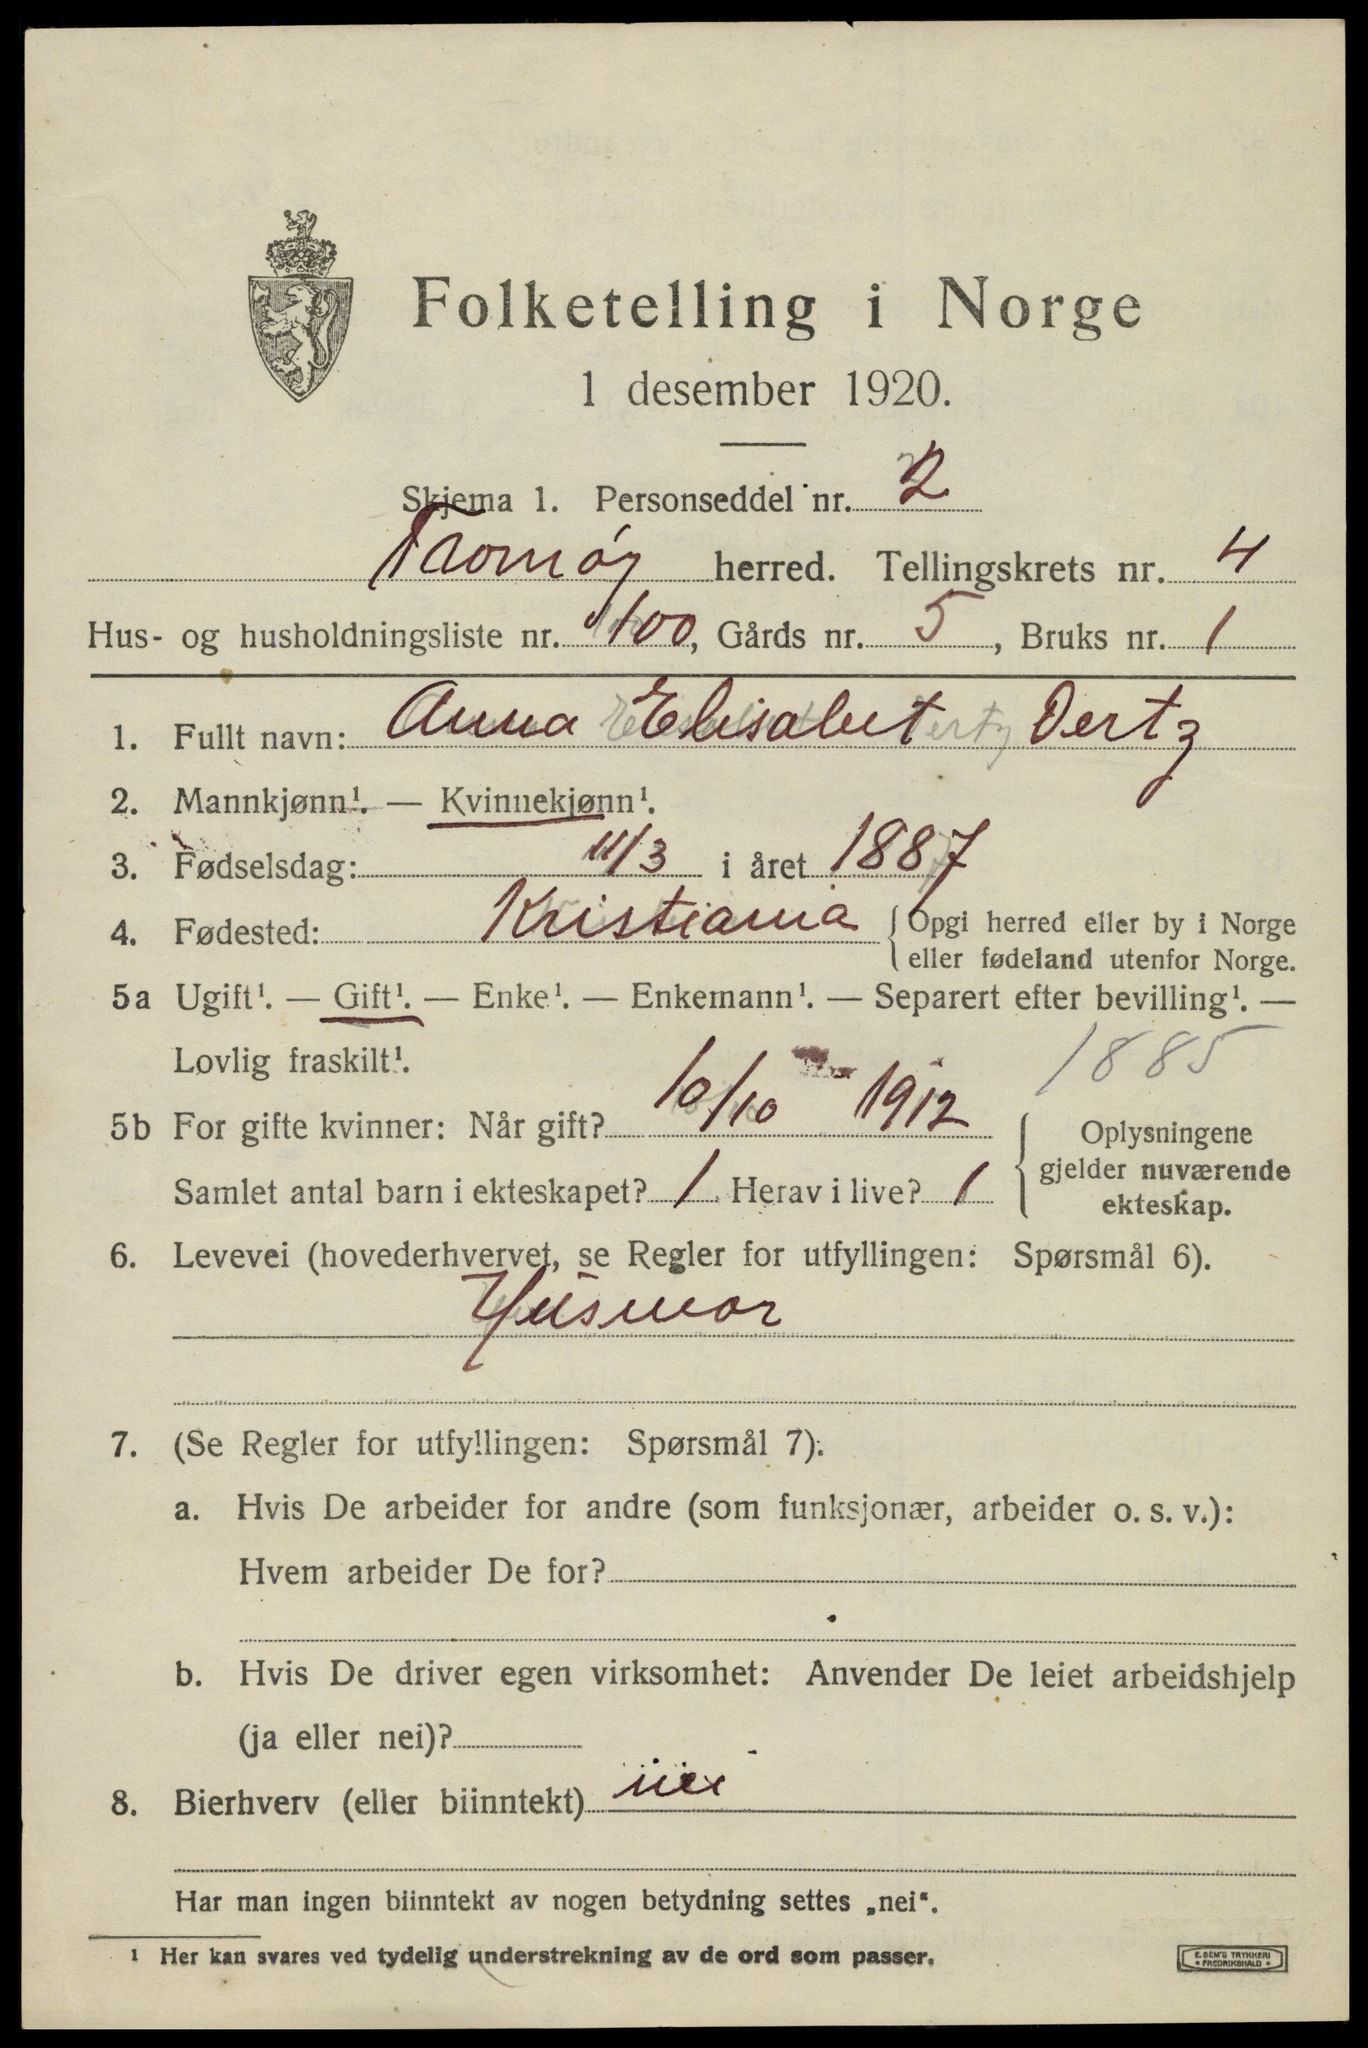 Folketelling i Norge
1 desember 1920.
Skjema 1. Personseddel nr. 2
Tromøy herred. Tellingskrets nr. 4
Hus- og husholdningsliste nr. 100, Gårds nr. 5, Bruks nr. 1
1. Fullt navn: Anna Elisabet Oertz
2. Mannkjønn¹. — Kvinnekjønn¹.
3. Fødselsdag: 11/3 i året 1887
4. Fødested: Kristiania { Opgi herred eller by i Norge
eller fødeland utenfor Norge.
5a Ugift¹. — Gift¹. — Enke¹. — Enkemann¹. — Separert efter bevilling¹. —
Lovlig fraskilt¹. 1885
5b For gifte kvinner: Når gift? 10/10 1912
Samlet antal barn i ekteskapet? 1 Herav i live? 1
Oplysningene
gjelder nuværende
ekteskap.
6. Levevei (hovederhvervet, se Regler for utfyllingen: Spørsmål 6).
Husmor
7. (Se Regler for utfyllingen: Spørsmål 7).
a. Hvis De arbeider for andre (som funksjonær, arbeider o. s. v.):
Hvem arbeider De for?
b. Hvis De driver egen virksomhet: Anvender De leiet arbeidshjelp
(ja eller nei)?
8. Bierhverv (eller biinntekt) nei
Har man ingen biinntekt av nogen betydning settes „nei“.
¹ Her kan svares ved tydelig understrekning av de ord som passer.
E. SEM'S TRYKKERI
FREDRIKSHALD